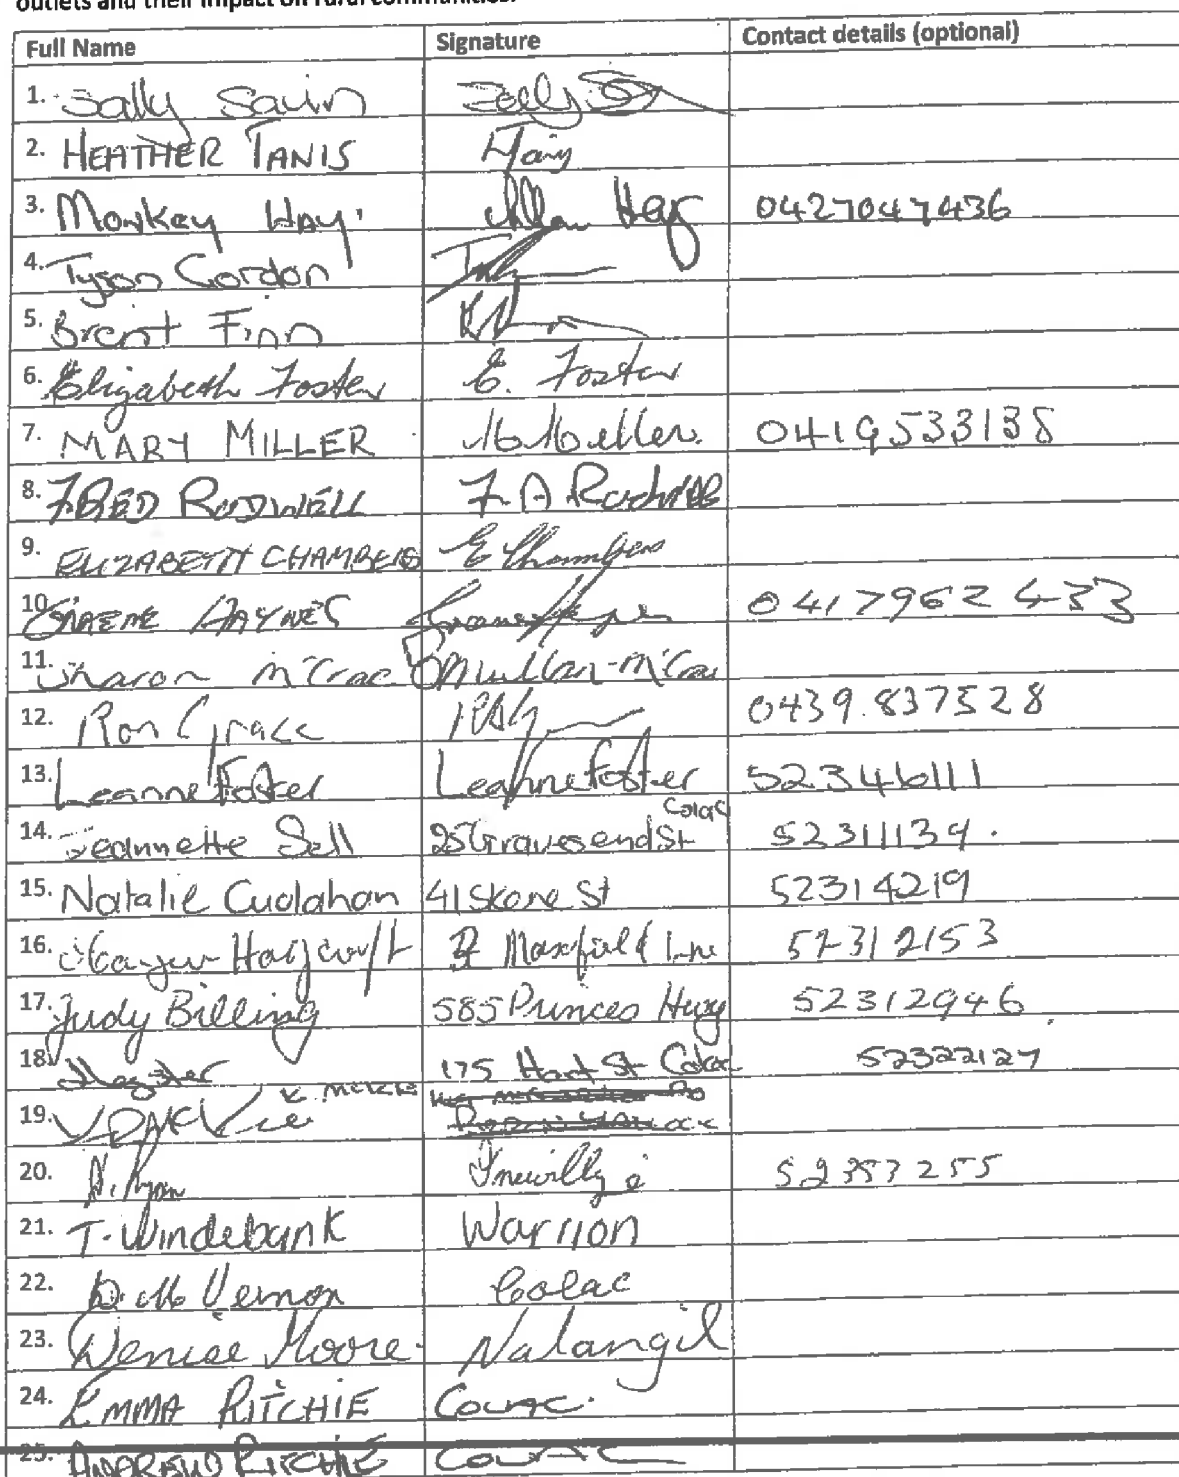 outlets and their impact on rural communities.
Full Name Signature Contact details (optional)
1. Sally Savin
2. HEATHER TANIS
3. Monkey HAY Hay 0427047436
4. Tyson Gordon
5. Brent Finn
6. Elizabeth Foster E. Foster
7. MARY MILLER 0419533138
8. FRED RODWELL F A
9. ELIZABETH CHAMBERS E Chambers
10. GRAEME HAYNES 0417962433
11. Sharon McCrae
12. Ron Grace 0439.837528
13. Leanne Foster Leanne Foster 52346111
14. Jeannette Sell 25 Gravesend St Colac 52311139.
15. Natalie Cudahan 41 Skene St 52314219
16. Maxfield 52312153
17. Judy Billing 585 Princes Hwy 52312946
18. 175 Hart St Colac 52322127
19.
20. Ryan Irrewillipe 52357255
21. T. Windebank Warrion
22. Vernon Colac
23. Denise Moore Nalangil
24. EMMA RITCHIE COLAC.
25. ANDREW RITCHIE COLAC